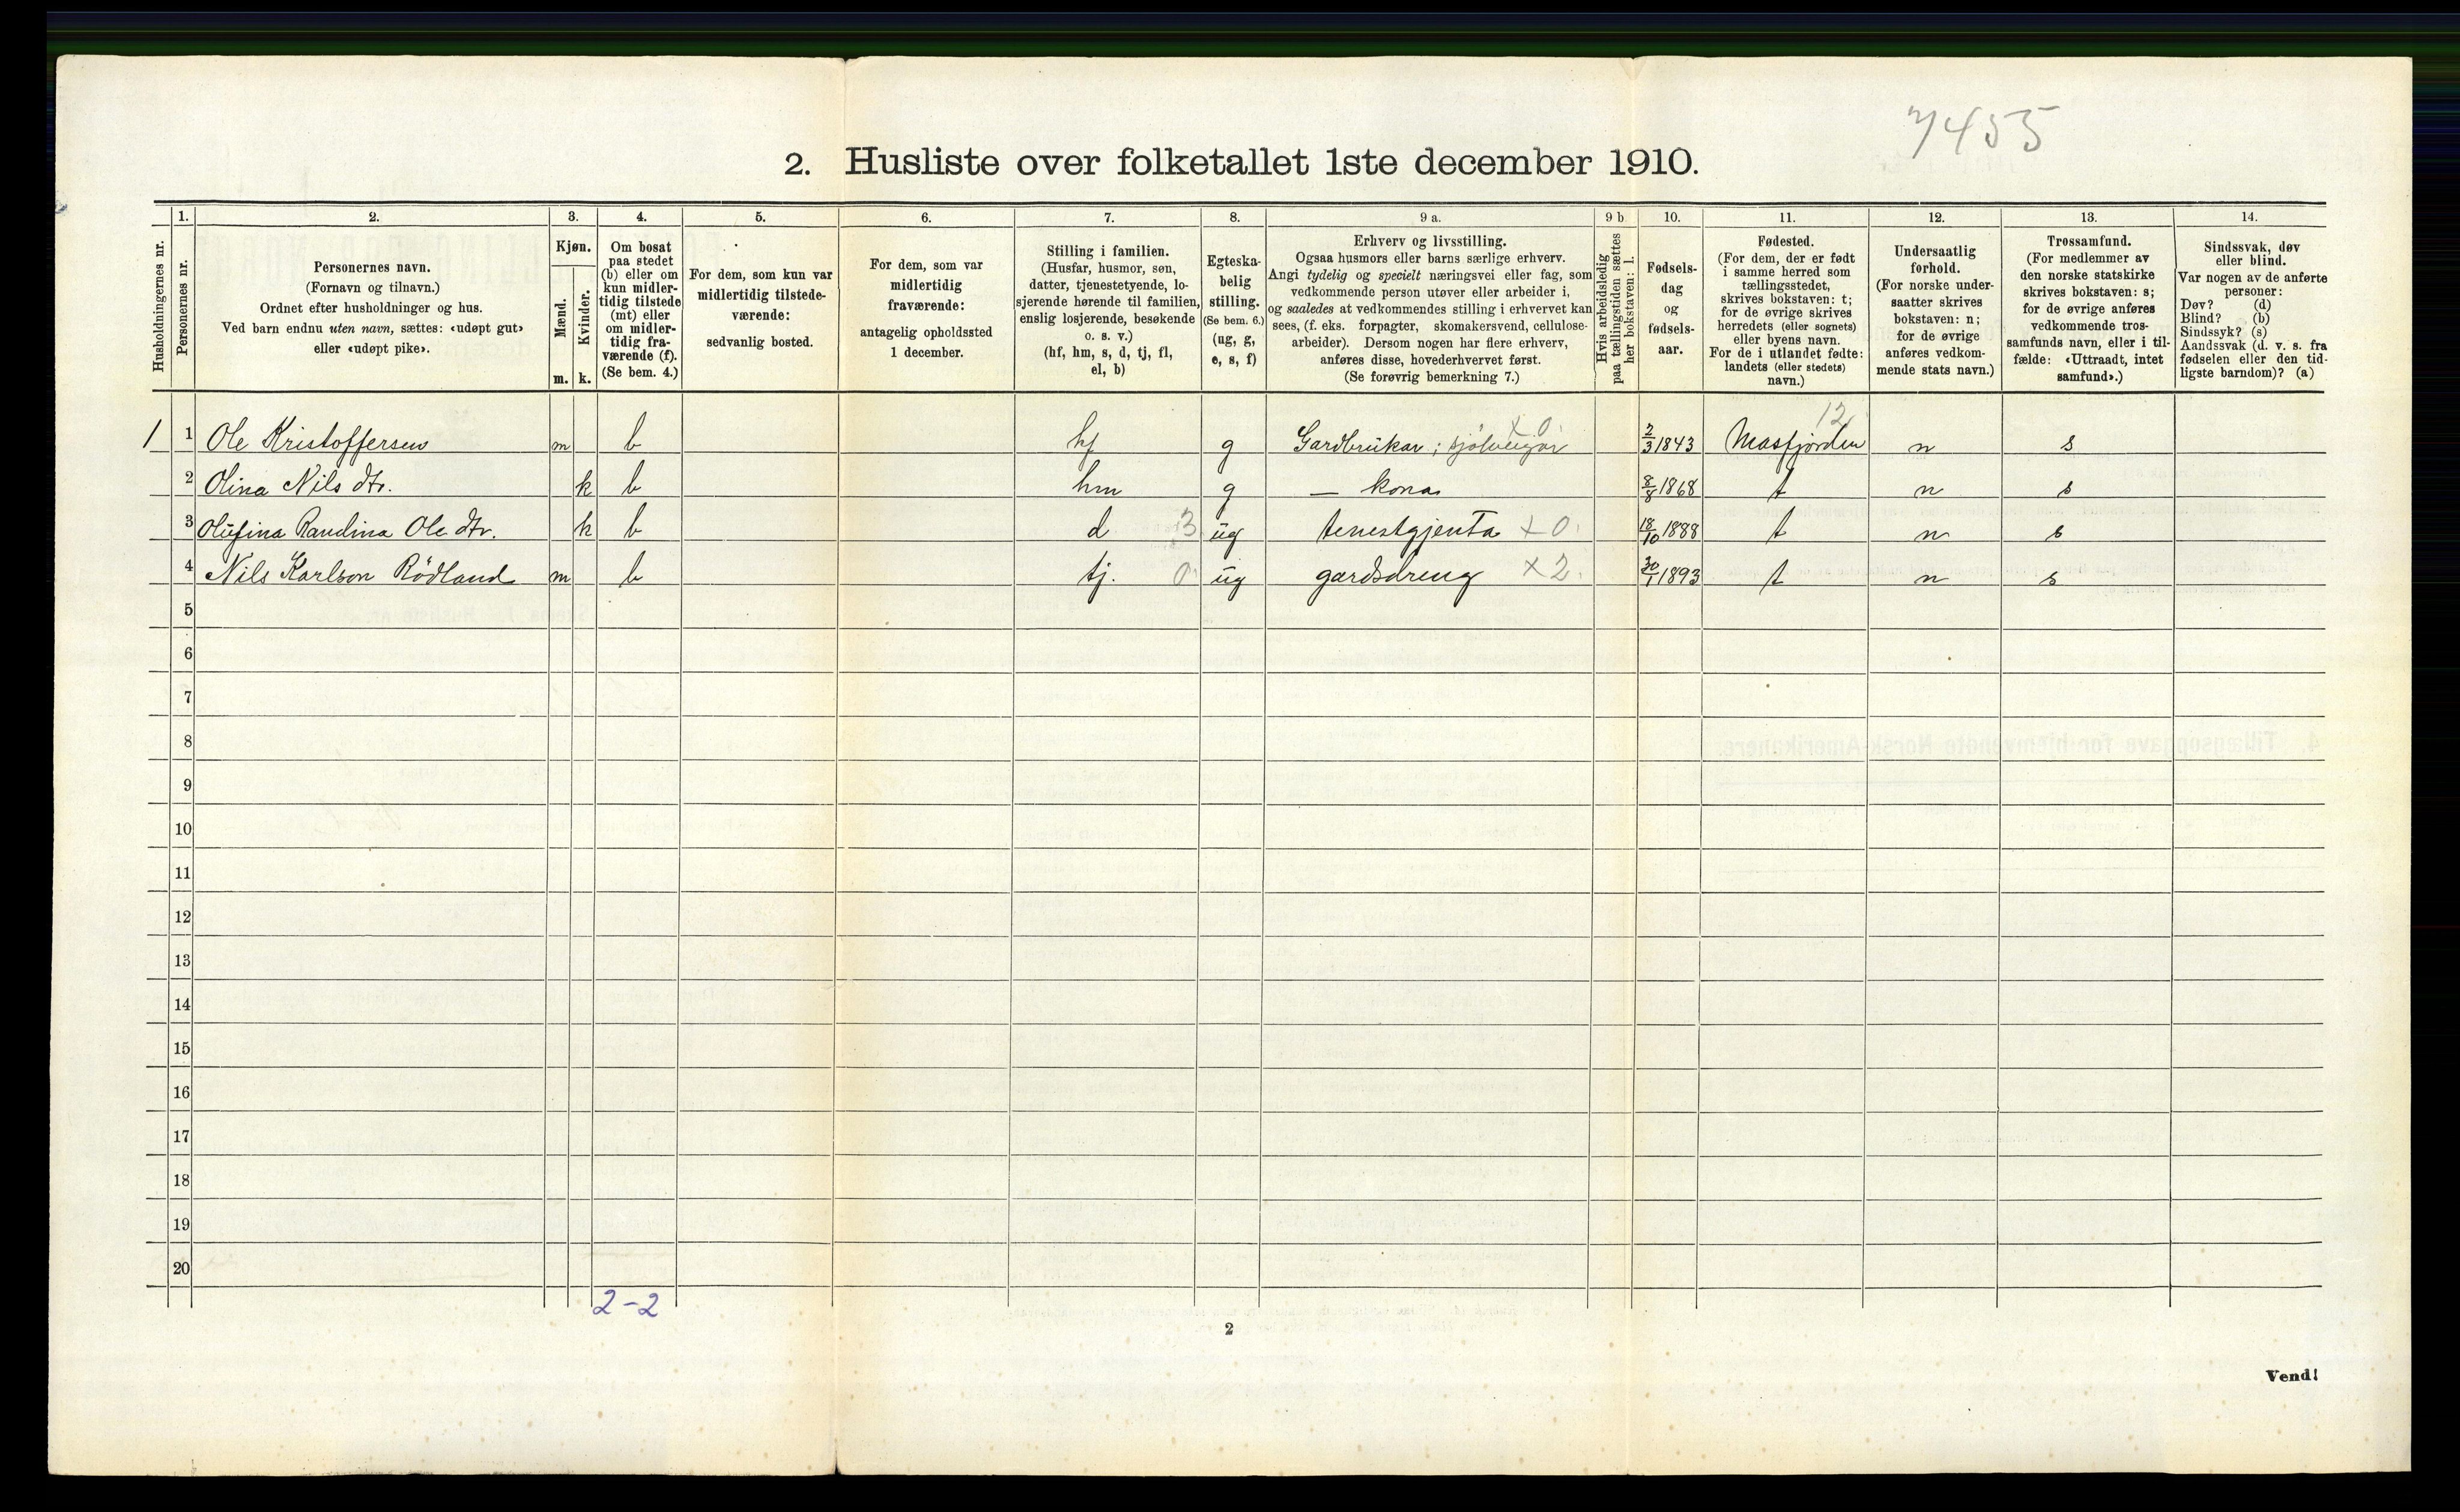 7455
2. Husliste over folketallet 1ste december 1910.
Husholdningernes nr.
1.
Personernes nr.
2.
Personernes navn.
(Fornavn og tilnavn.)
Ordnet efter husholdninger og hus.
Ved barn endnu uten navn, sættes: «udøpt gut»
eller «udøpt pike».
3.
Kjøn.
Mænd.
Kvinder.
m. k.
4.
Om bosat
paa stedet
(b) eller om
kun midler-
tidig tilstede
(mt) eller
om midler-
tidig fra-
værende (f).
(Se bem. 4.)
5.
For dem, som kun var
midlertidig tilstede-
værende:
sedvanlig bosted.
6.
For dem, som var
midlertidig
fraværende:
antagelig opholdssted
1 december.
7.
Stilling i familien.
(Husfar, husmor, søn,
datter, tjenestetyende, lo-
sjerende hørende til familien,
enslig losjerende, besøkende
o. s. v.)
(hf, hm, s, d, tj, fl,
el, b)
8.
Egteska-
belig
stilling.
(Se bem. 6.)
(ug, g,
e, s, f)
9 a.
Erhverv og livsstilling.
Ogsaa husmors eller barns særlige erhverv.
Angi tydelig og specielt næringsvei eller fag, som
vedkommende person utøver eller arbeider i,
og saaledes at vedkommendes stilling i erhvervet kan
sees, (f. eks. forpagter, skomakersvend, cellulose-
arbeider). Dersom nogen har flere erhverv,
anføres disse, hovederhvervet først.
(Se forøvrig bemerkning 7.)
9 b
Hvis arbeidsledig
paa tællingstiden sættes
her bokstaven: l.
10.
Fødsels-
dag
og
fødsels-
aar.
11.
Fødested.
(For dem, der er født
i samme herred som
tællingsstedet,
skrives bokstaven: t;
for de øvrige skrives
herredets (eller sognets)
eller byens navn.
For de i utlandet fødte:
landets (eller stedets)
navn.)
12.
Undersaatlig
forhold.
(For norske under-
saatter skrives
bokstaven: n;
for de øvrige
anføres vedkom-
mende stats navn.)
13.
Trossamfund.
(For medlemmer av
den norske statskirke
skrives bokstaven: s;
for de øvrige anføres
vedkommende tros-
samfunds navn, eller i til-
fælde: «Uttraadt, intet
samfund».)
14.
Sindssvak, døv
eller blind.
Var nogen av de anførte
personer:
Døv? (d)
Blind? (b)
Sindssyk? (s)
Aandssvak (d. v. s. fra
fødselen eller den tid-
ligste barndom)? (a)
x 0 12
1 1 Ole Kristoffersen m b hf g Gardbrukar ; sjølveigar 2/3 1843 Masfjorden n s
2 Olina Nils dtr. k b hm g — kona 8/8 1868 t n s
3 Olufina Randina Ole dtr. k b d 3 ug tenestgjenta x 0 18/10 1888 t n s
4 Nils Karlson Rödland m b tj. 0 ug gardsdreng x 2 30/1 1893 t n s
5
6
7
8
9
10
11
12
13
14
15
16
17
18
19
20
2-2
2
Vend!